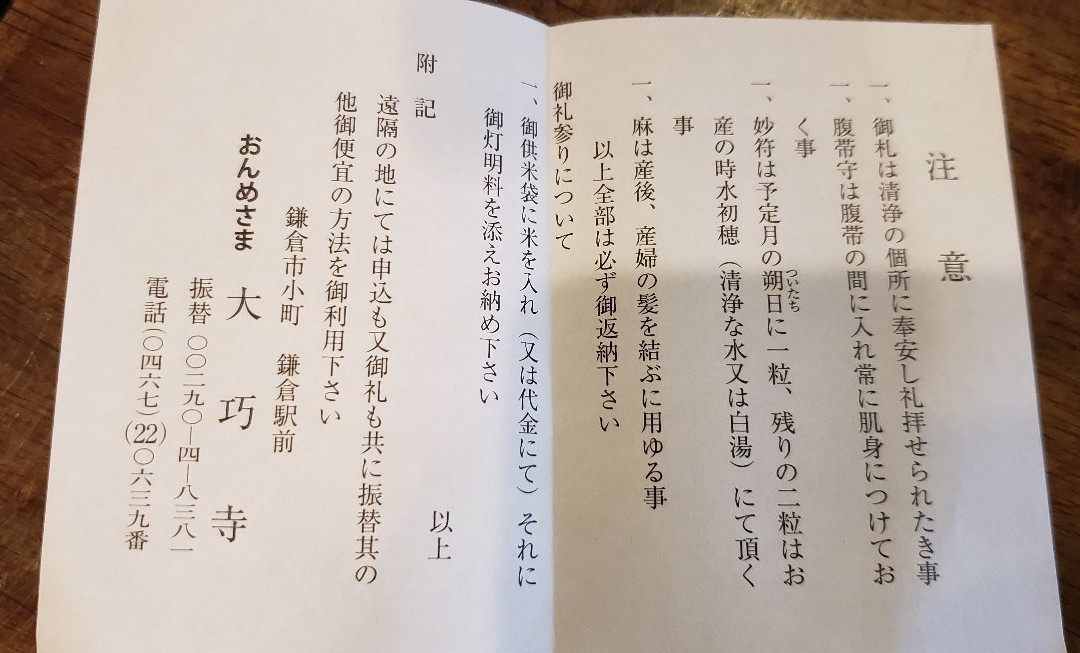 注意
一、御札は清浄の個所に奉安し礼拝せられたき事
一、腹帯守は腹帯の間に入れ常に肌身につけてお
く事
一、妙符は予定月の朔日に一粒、残りの二粒はお
ついたち
産の時水初穂（清浄な水又は白湯）にて頂く
事
一、麻は産後、産婦の髪を結ぶに用ゆる事
以上全部は必ず御返納下さい
御礼参りについて
一、御供米袋に米を入れ（又は代金にて）それに
御灯明料を添えお納め下さい
以上
附記
遠隔の地にては申込も又御礼も共に振替其の
他御便宜の方法を御利用下さい
鎌倉市小町 鎌倉駅前
おんめさま 大巧寺
振替 〇〇二九〇―四―八三八一
電話(〇四六七)(22)〇六三九番